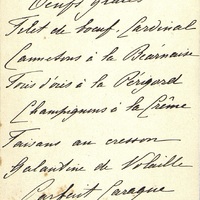 Oeufs Granes
Filet de boeuf Cardinal
Cannetons à la Béarnaise
Foies d'oies à la Périgord
Champignons à la Crème
Faisans au cresson
Galantine de Volaille
Parfait Caraque